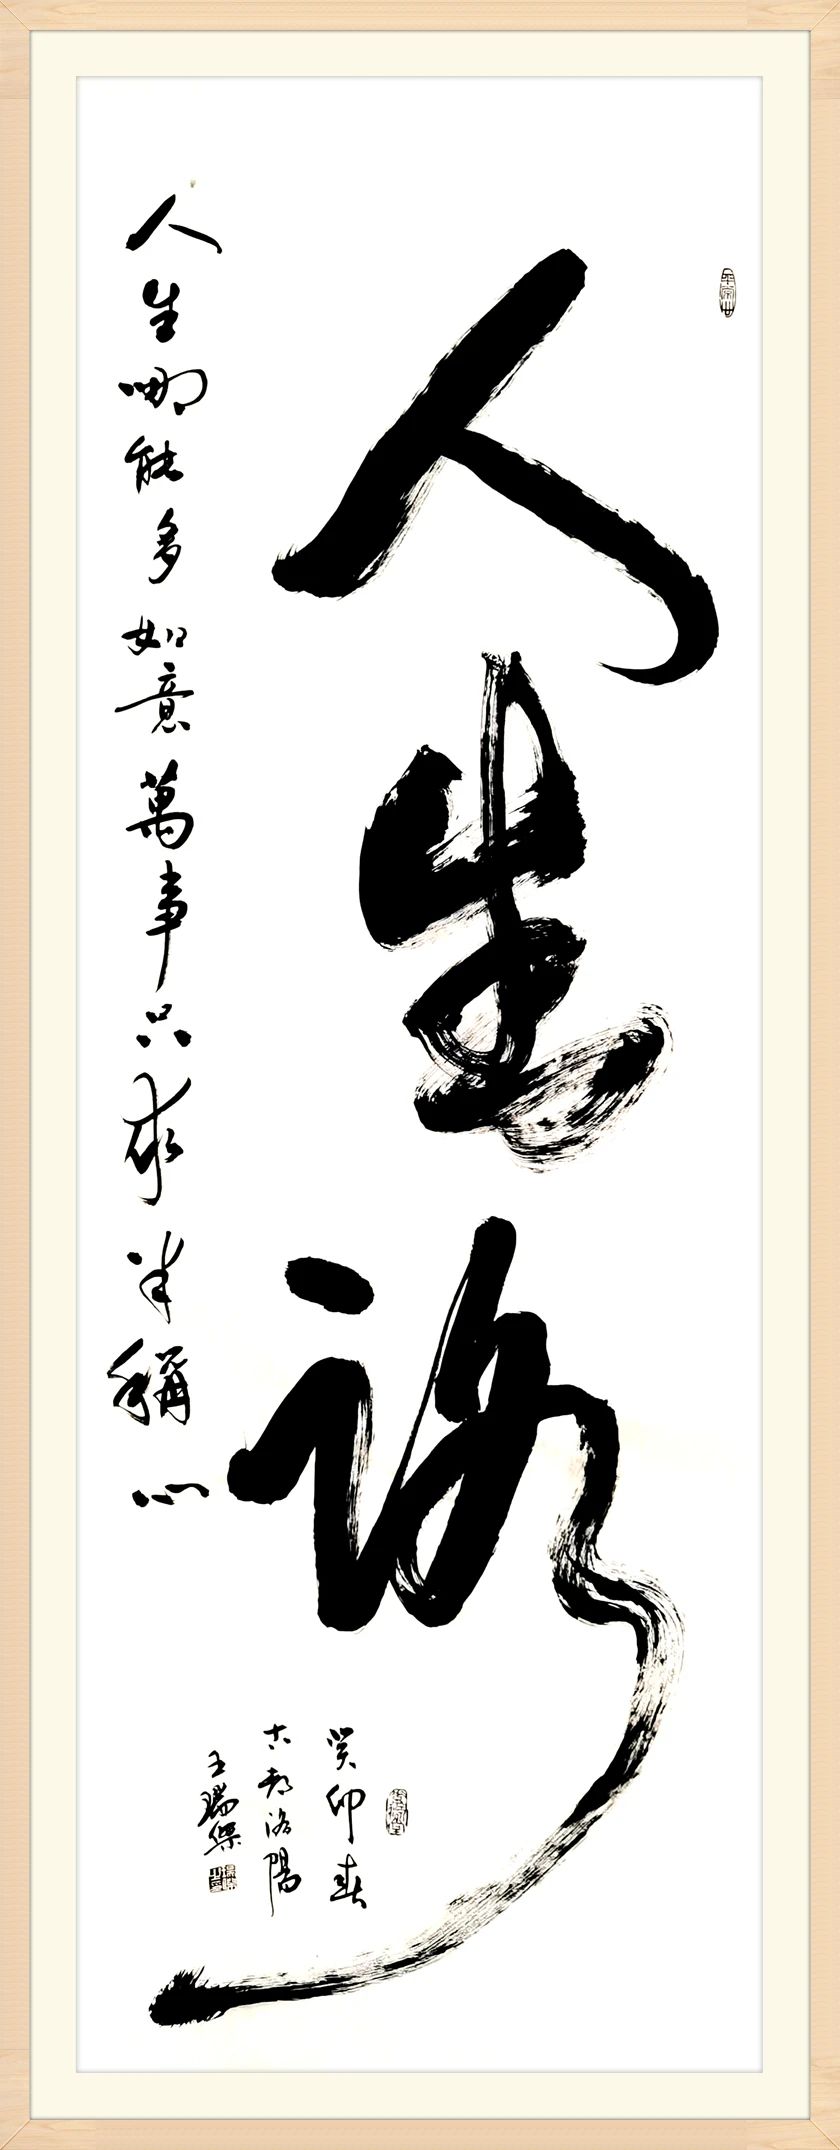 人生路
人生哪能多如意萬事只求半稱心
癸卯春
古都洛陽
王瑞傑